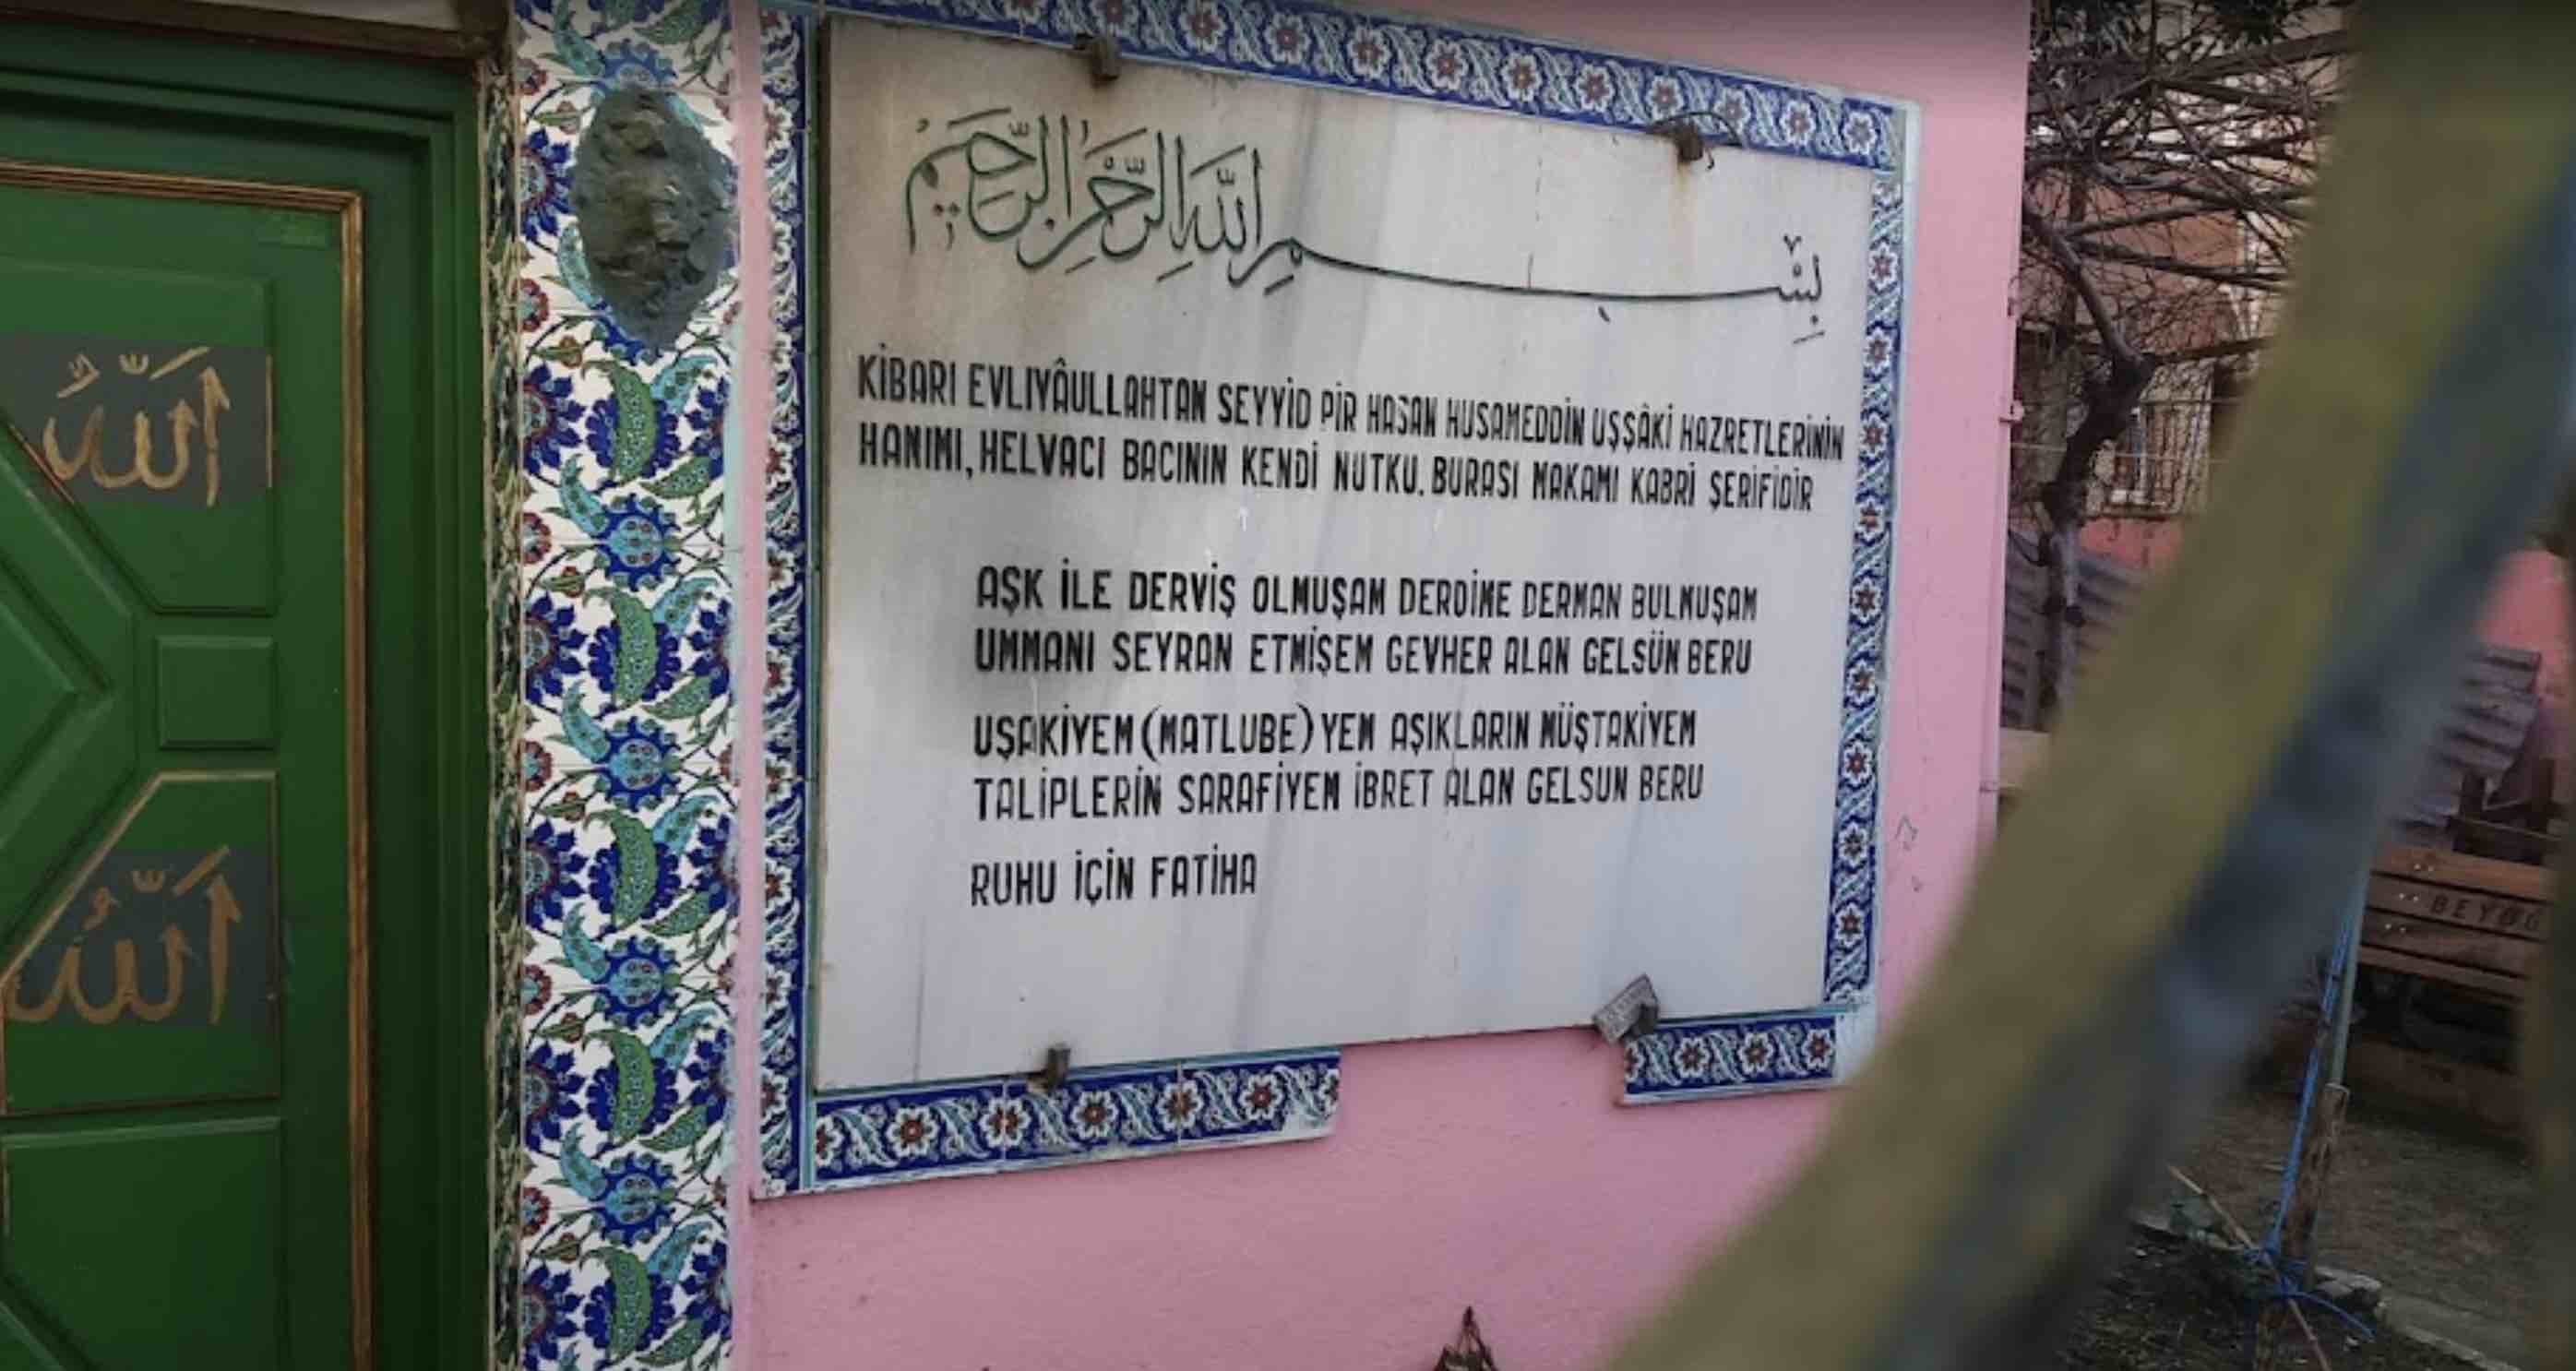 الله
الله
بِسْمِ اللهِ الرَّحْمٰنِ الرَّحِيمِ
KİBARI EVLIYÂULLAHTAN SEYYİD PİR HASAN HUSAMEDDİN UŞŞÂKİ HAZRETLERİNİN
HANIMI, HELVACI BACININ KENDİ NUTKU. BURASI MAKAMI KABRİ ŞERİFİDİR
AŞK İLE DERVİŞ OLMUŞAM DERDİME DERMAN BULMUŞAM
UMMANI SEYRAN ETMİŞEM GEVHER ALAN GELSÜN BERU
UŞAKİYEM (MATLUBE) YEM AŞIKLARIN MÜŞTAKİYEM
TALİPLERİN SARAFİYEM İBRET ALAN GELSUN BERU
RUHU İÇİN FATİHA
BEYOĞ